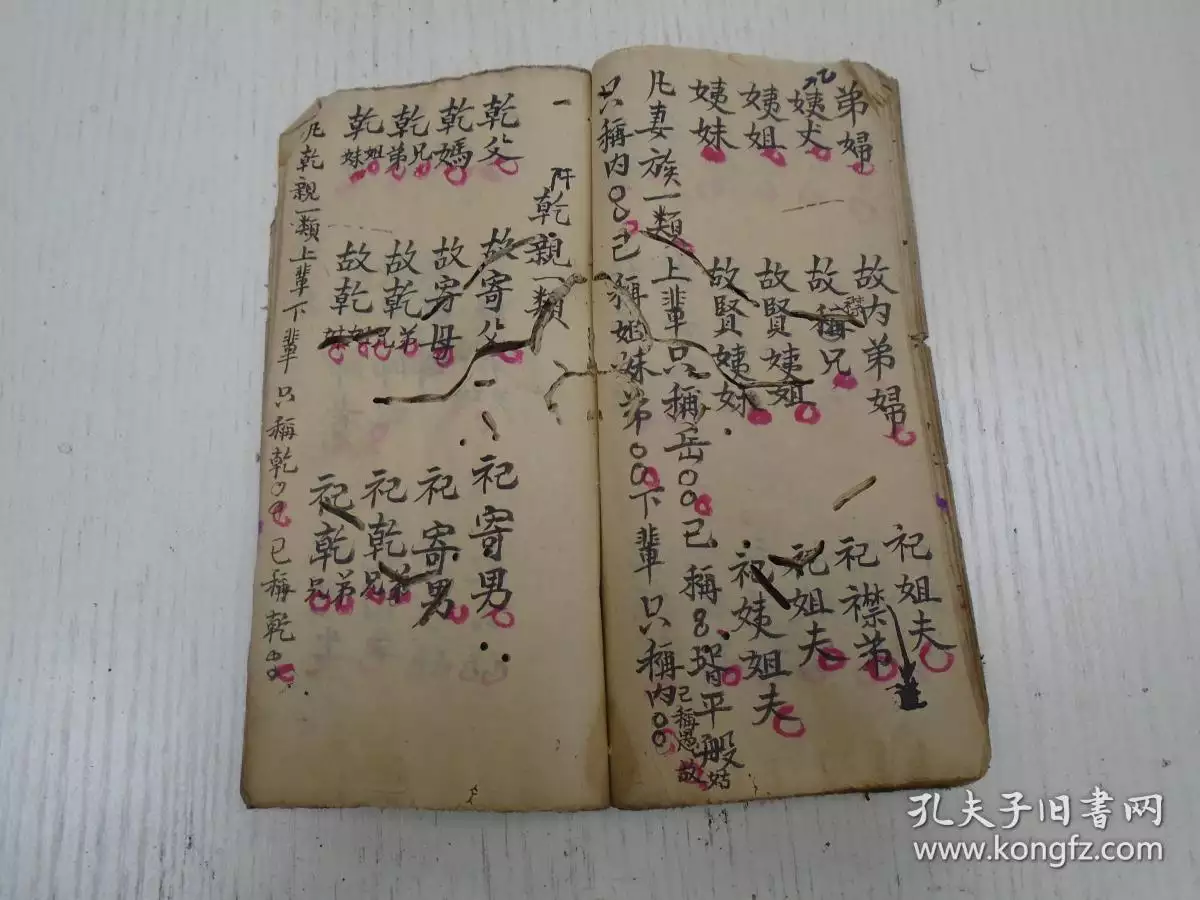 弟婦 故内弟婦 祀姐夫
姨丈 故襟兄 祀襟弟
姨姐 故賢姨姐 祀姐夫
姨妹 故賢姨妹 祀姨姐夫
凡妻族一類上輩只稱岳○○己稱○壻平般
只稱内○○己稱姐妹弟○○下輩只稱内○○
己稱愚故姑
一 乾親一類
乾父 故寄父 祀寄男
乾媽 故寄母 祀寄男
乾兄弟 故乾兄弟 祀乾兄弟
乾姐妹 故乾姐妹 祀乾兄弟
凡乾親一類上輩下輩只稱乾○○己稱乾○○
孔夫子旧书网
www.kongfz.com